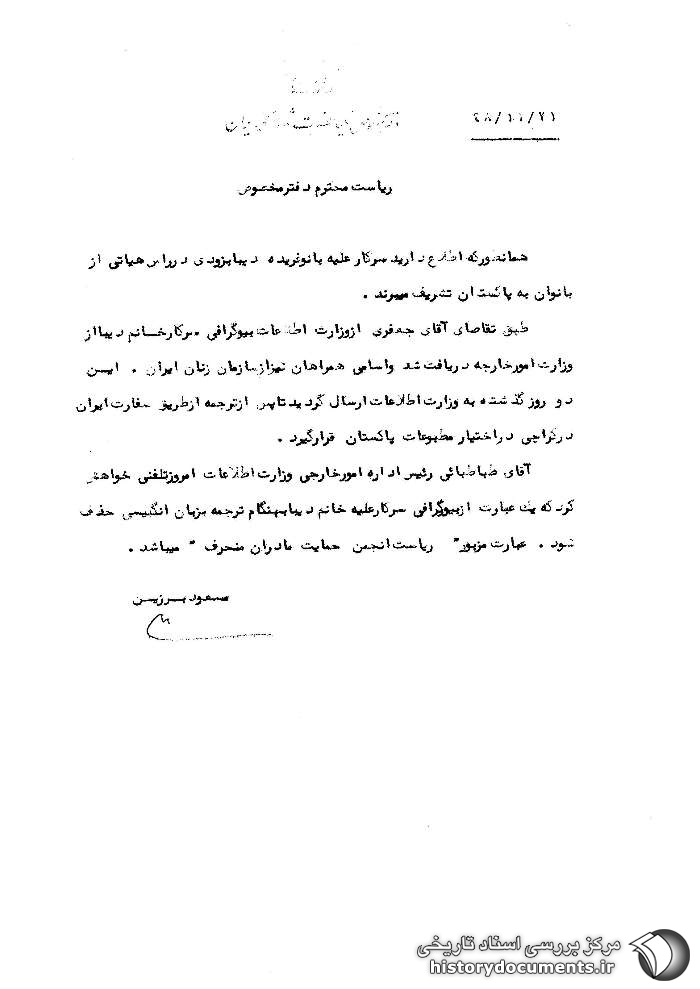 ریاست محترم دفتر مخصوص
همانطور که اطلاع دارید سرکار علیه بانو فریده دیبا بزودی در راس هیاتی از
بانوان به پاکستان تشریف میبرند .
طبق تقاضای آقای جعفری از وزارت اطلاعات بیوگرافی سرکار خانم دیبا از
وزارت امور خارجه دریافت شد و اسامی همراهان نیز از سازمان زنان ایران . ایسن
دو روز گذشته به وزارت اطلاعات ارسال گردید تا پس از ترجمه از طریق سفارت ایران
در کراچی در اختیار مطبوعات پاکستان قرار گیرد .
آقای طباطبائی رئیس اداره امور خارجی وزارت اطلاعات امروز تلفنی خواهش
کرد که یك عبارت از بیوگرافی سرکار علیه خانم دیبا بهنگام ترجمه بزبان انگلیسی حذف
شود . عبارت مزبور " ریاست انجمن حمایت مادران منحرف " میباشد .
مسعود بـرزیـن
مرکز بررسی اسناد تاریخی
historydocuments.ir